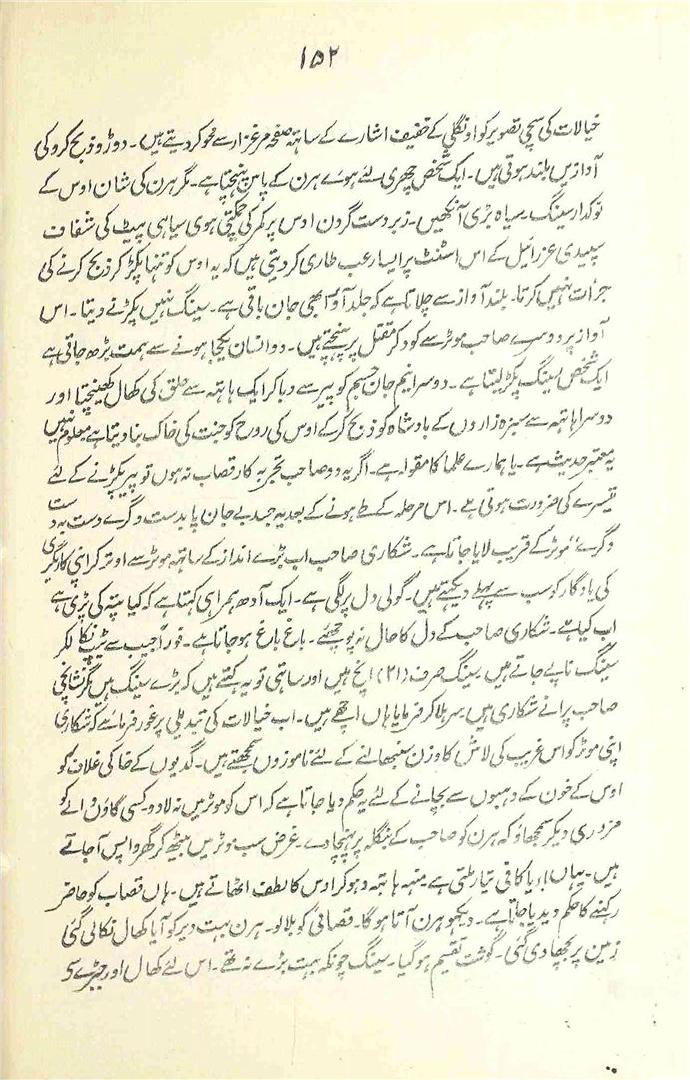 ۱۵۲
خیالات کی سچی تصویر کو اونگلی کے خفیف اشارے کے ساتہہ صفحہ مرغزار سے محو کر دیتے ہیں۔ دوڑو ذبح کرو کی
آوازیں بلند ہوتی ہیں۔ ایک شخص چھری لئے ہوے ہرن کے پاس پہنچتا ہے۔ مگر ہرن کی شان اوس کے
نوکدار سینگ۔ سیاہ بڑی آنکھیں۔ زبردست گردن اوس پر کمر کی چمکتی ہوی سیاہی پیٹ کی شفاف
سپیدی عزرائیل کے اس اسٹنٹ پر ایسا رعب طاری کر دیتی ہیں کہ یہ اوس کو تنہا پکڑ کر ذبح کرنے کی
جرأت نہیں کرتا۔ بلند آواز سے چلاتا ہے کہ جلد آؤ ابھی جان باقی ہے۔ سینگ نہیں پکڑنے دیتا۔ اس
آواز پر دوسرے صاحب موٹر سے کود کر مقتل پر پہنچتے ہیں۔ دو انسان یکجا ہونے سے ہمت بڑھ جاتی ہے
ایک شخص سینگ پکڑ لیتا ہے۔ دوسرا نیم جان جسم کو پیر سے دبا کر ایک ہاتہہ سے حلق کی کھال کھینچتا اور
دوسرے ہاتہہ سے سبزہ زاروں کے بادشاہ کو ذبح کر کے اوس کی روح کو جنت کی خاک بنا دیتا ہے معلوم نہیں
یہ معتبر حدیث ہے۔ یا ہمارے علما کا مقولہ ہے۔ اگر یہ دو صاحب تجربہ کار قصاب نہ ہوں تو پیر پکڑنے کے لئے
تیسرے کی ضرورت ہوتی ہے۔ اس مرحلہ کے طے ہونے کے بعد یہ جسد بے جان پا بدست دگرے دست بدست
دگرے" موٹر کے قریب لایا جاتا ہے۔ شکاری صاحب اب بڑے انداز کے ساتہہ موٹر سے اوتر کر اپنی کاریگری
کی یادگار کو سب سے پہلے دیکھتے ہیں۔ گولی دل پر لگی ہے۔ ایک آدھ ہمراہی کہتا ہے کہ کیا پتہ کی پڑی ہے
اب کیا ہے۔ شکاری صاحب کے دل کا حال نہ پوچھئے۔ باغ باغ ہو جاتا ہے۔ فوراً جیب سے ٹیپ نکال کر
سینگ ناپے جاتے ہیں۔ سینگ صرف (۲۱) انچ ہیں اور ساتہی تو یہ کہتے ہیں کہ بڑے سینگ ہیں مگر نشانچی
صاحب پرانے شکاری ہیں۔ سر ہلا کر فرمایا ہاں اچھے ہیں۔ اب خیالات کی تبدیلی پر غور فرمائیے کہ شکاری
اپنی موٹر کو اس غریب کی لاش کا وزن سنبھالنے کے لئے ناموزوں سمجھتے ہیں۔ گدیوں کے خاکی غلاف کو
اوس کے خون کے دہبوں سے بچانے کے لئے یہ حکم دیا جاتا ہے کہ اس کو موٹر میں نہ لادو۔ کسی گاؤں والے کو
مزدوری دیکر سمجھاؤ کہ ہرن کو صاحب کے بنگلہ پر پہنچا دے۔ غرض سب موٹر میں بیٹھ کر گھر واپس آ جاتے
ہیں۔ یہاں چاء یا کافی تیار ملتی ہے۔ منہہ ہاتہہ دھو کر اوس کا لطف اٹھاتے ہیں۔ ہاں قصاب کو حاضر
رکھنے کا حکم دیدیا جاتا ہے۔ دیکھو ہرن آتا ہوگا۔ قصائی کو بلا لو۔ ہرن بہت دیر کو آیا کھال نکالی گئی
زمین پر بچھا دی گئی۔ گوشت تقسیم ہو گیا۔ سینگ چونکہ بہت بڑے نہ تھے۔ اس لئے کھال اور چہرے